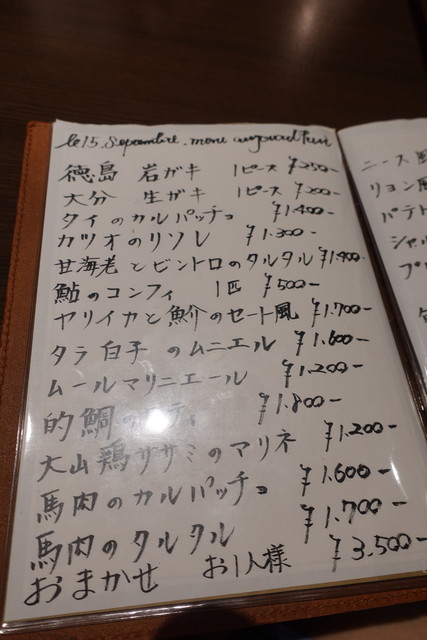 le 15. Sepambre. menu aujourd'hui
徳島 岩ガキ 1ピース ¥250-
大分 生ガキ 1ピース ¥200-
タイのカルパッチョ ¥1.400-
カツオのリソレ ¥1.300-
甘海老とビントロのタルタル ¥1.400-
鮎のコンフィ 1匹 ¥500-
ヤリイカと魚介のセート風 ¥1.700-
タラ白子のムニエル ¥1.600-
ムールマリニエール ¥1.200-
的鯛の ¥1.800-
大山鶏ササミのマリネ ¥1.200-
馬肉のカルパッチョ ¥1.600-
馬肉のタルタル ¥1.700-
おまかせ お1人様 ¥3.500-
ニース風
リヨン風
パテ
シャル